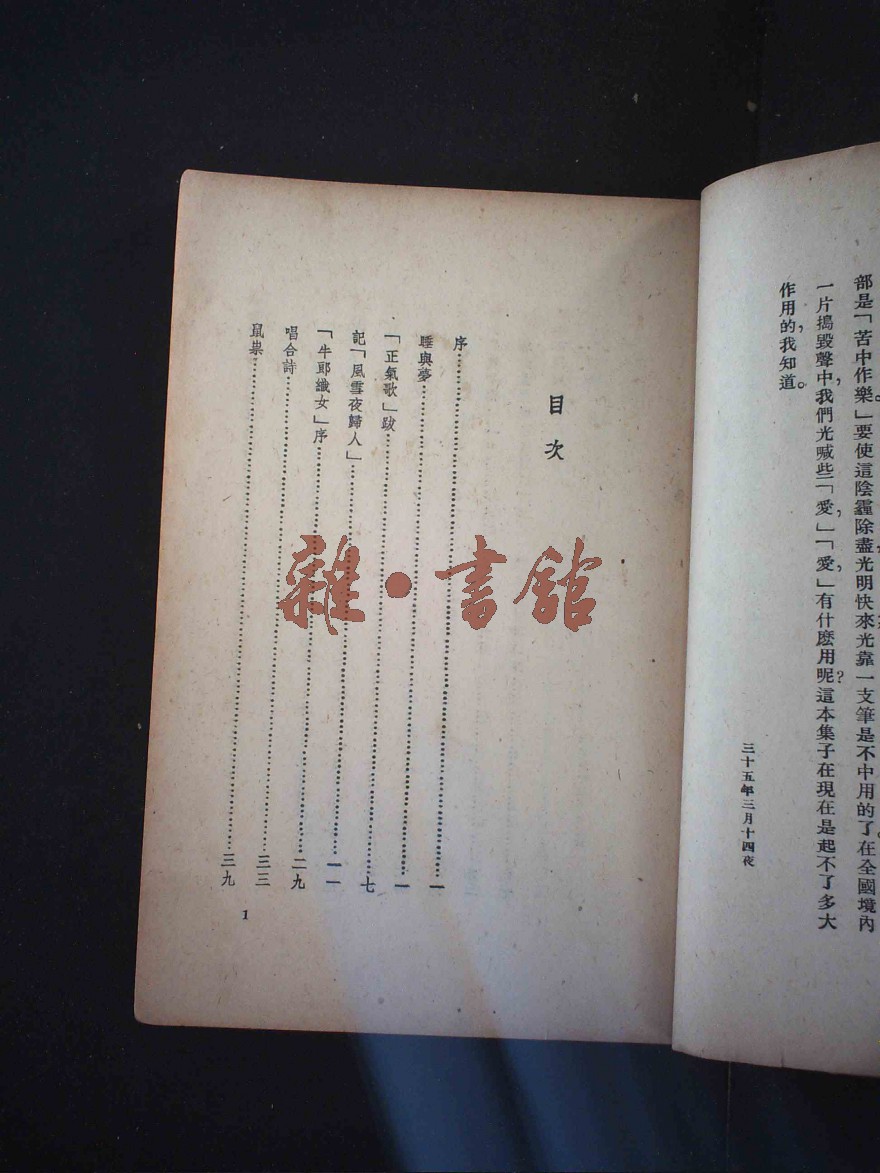 部是「苦中作樂」要使這陰霾除盡,光明快來,光靠一支筆是不中用的了。在全國境內
一片搗毀聲中,我們光喊些「愛」,「愛」,有什麽用呢?這本集子在現在是起不了多大
作用的,我知道。
三十五年三月十四夜
目次
序……一
睡與夢……一
「正氣歌」跋……七
記「風雪夜歸人」……一一
「牛郎織女」序……二九
唱合詩……三三
鼠祟……三九
1
雜·書館